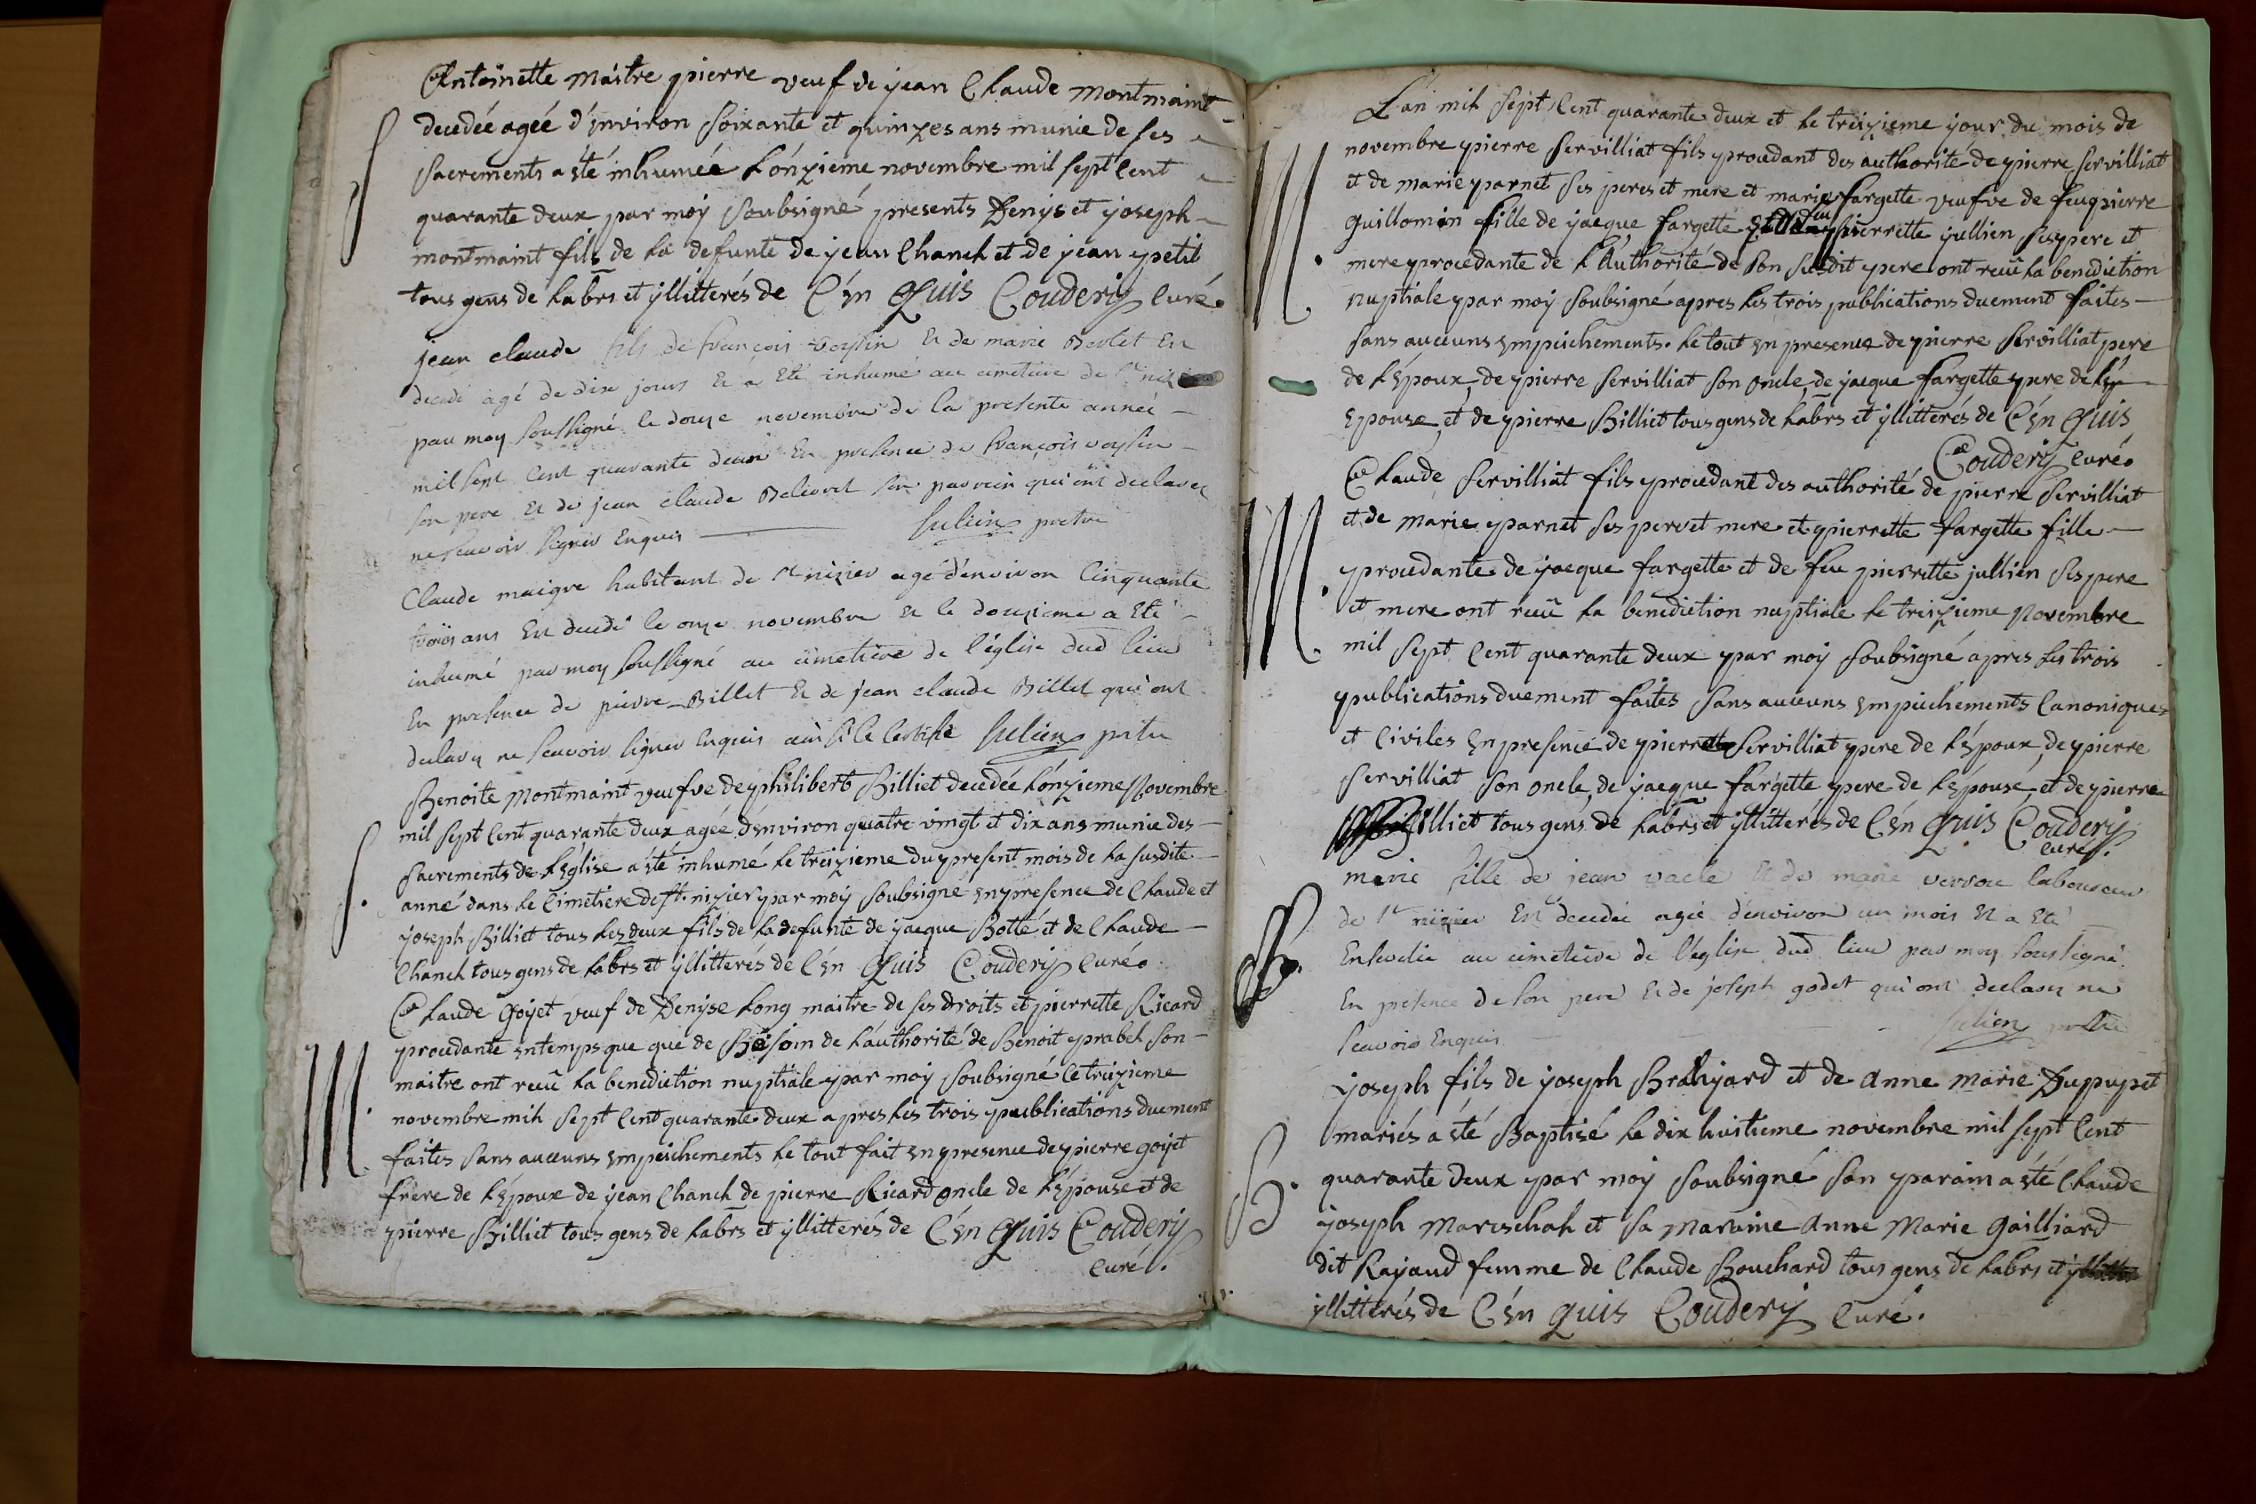 Antoinette Maitre pierre veuf de jean Claude montmaint
decedée agée d'environ soixante et quinzes ans munie de ses
sacrements a été inhumée l'onzieme novembre mil sept cent
quarante deux par moy soubsigné presents Denys et joseph
montmaint fils de la defunte de jean Chanel et de jean petit
tous gens de labrs et yllitterés de C'en Quis Coudery curé.
jean claude fils de françois voysin et de marie
decedé agé de dix jours et a eté inhumé au cimetiere de st niz
par moy soussigné le douze novembre de la presente année
mil sept cent quarante deux en presence de françois voysin
son pere et de jean claude son parrein qui ont declarez
ne scavoir signer Enquis Julien pretre
Claude maigre habitant de st nizier agé d'environ Cinquante
trois ans Est decedé le onze novembre et le douzieme a Eté
inhumé par moy soussigné au cimetiere de l'église dud lieu
En presence de pierre Billet et de jean claude Billet qui ont
declarez ne scavoir signer Enquis ainsi le Certifie Julien pretre
Benoite Montmaint veufve de philibert Billiet decedée l'onzieme Novembre
mil sept cent quarante deux agée d'environ quatre vingt et dix ans munie des
sacrements de l'église a été inhumé le treizieme du present mois de la susdite
anné dans le Cimetiere de st. nizier par moy soubsigné en presence de Claude et
joseph Billiet tous les deux fils de la defunte de jacque Botté et de Claude
Chanel tous gens de labrs et yllitterés de C'en Quis Coudery curé.
S.
Claude Goyet veuf de Denyse Long maitre de ses droits et pierrette Ricard
procedante en temps que que de Besoin de l'authorité de Benoit prabel son
maitre ont receu la benediction nuptiale par moy soubsigné le treizieme
novembre mil sept cent quarante deux apres les trois publications duement
faites sans aucuns empeichements le tout fait en presence de pierre goyet
frere de l'époux de jean Chanel de pierre Ricard oncle de l'épouse et de
pierre Billiet tous gens de labrs et yllitterés de C'en Quis Coudery
curé.
M.
L'an mil sept cent quarante deux et le treizieme jour du mois de
novembre pierre servilliat fils procedant des authorité de pierre servilliat
et de marie parnet ses peres et mere et marie fargette veufve de feu pierre
Guillomin fille de jacque fargette pierrette jullien ses pere et
mere procedante de l'Authorité de son susdit pere ont receu la benediction
nuptiale par moy soubsigné apres les trois publications duement faites
sans aucuns empeichements. le tout en presence de pierre servilliat pere
de l'époux, de pierre servilliat son oncle, de jacque fargette pere de l'
Epouse, et de pierre Billiet tous gens de labrs et yllitterés de C'en Quis
Coudery curé.
M.
Claude servilliat fils procedant des authorité de pierre servilliat
et de marie parnet ses pere et mere et pierrette fargette fille
procedante de jacque fargette et de feu pierrette jullien ses pere
et mere ont receu la benediction nuptiale le treizieme Novembre
mil sept cent quarante deux par moy soubsigné apres les trois
publications duement faites sans aucuns empeichements Canoniques
et Civiles en presence de pierre servilliat pere de l'époux, de pierre
servilliat son oncle, de jacque fargette pere de l'épouse, et de pierre
Billiet tous gens de labrs et yllitterés de C'en Quis Coudery
curé.
M.
marie fille de jean vacle et de marie laboureur
de st nizier Est decedée agée d'environ un mois et a Eté
Ensevelie au cimetiere de l'église dud lieu par moy soussigné
En présence de son pere et de joseph godet qui ont declarez ne
scavoir Enquis Julien pretre
joseph fils de joseph Brallyard et de anne marie Duppupet
mariés a été Baptisé le dix huitieme novembre mil sept cent
quarante deux par moy soubsigné son parain a été Claude
joseph Mareschal et sa maraine anne Marie Gailliard
dit Rayaud femme de Claude Bouchard tous gens de labrs et
yllitterés de C'en quis Coudery curé.
B.